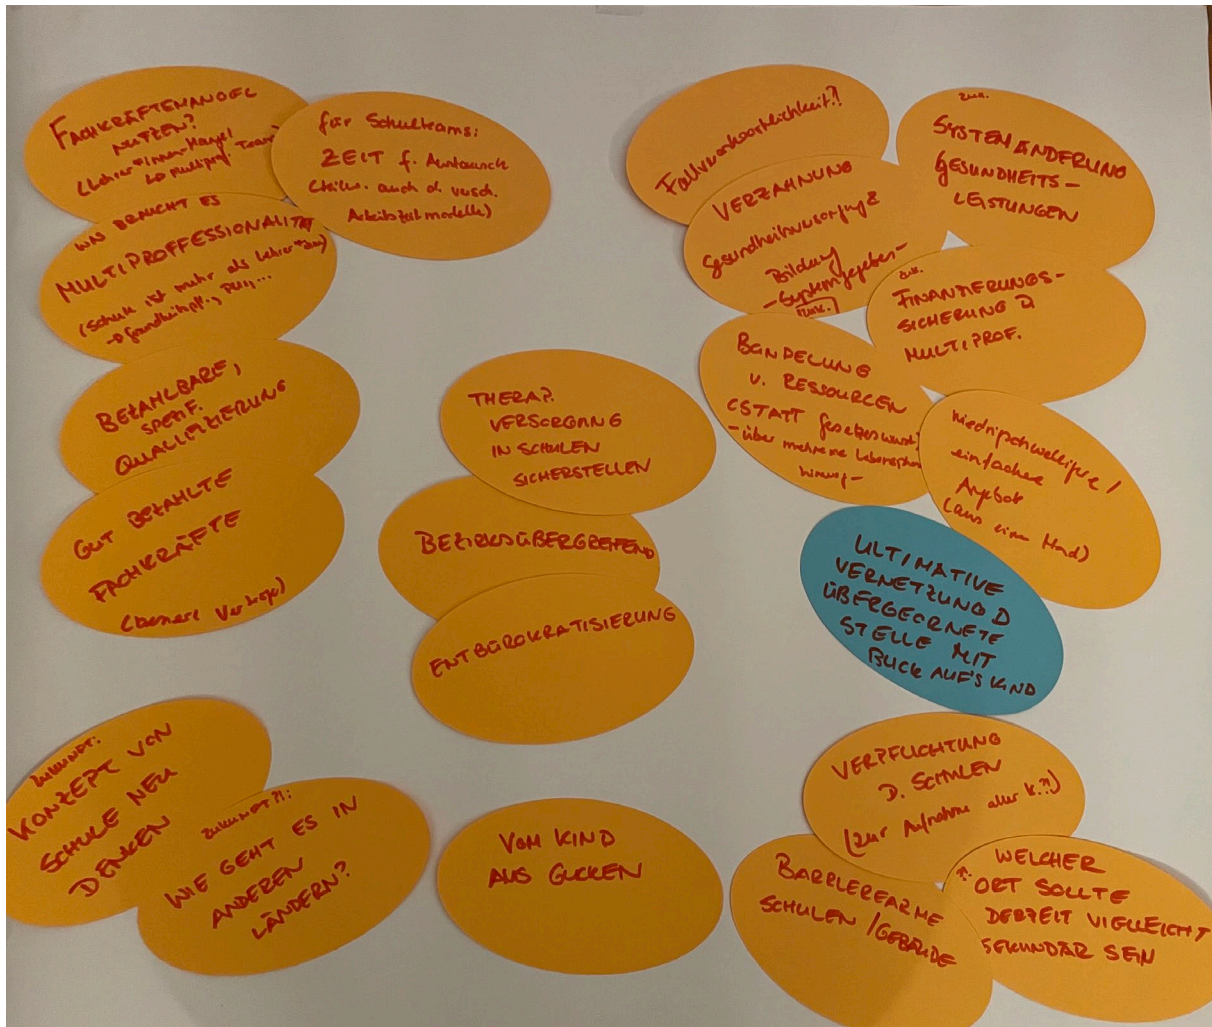 FACHKRÄFTEMANGEL
NUTZEN?
(Lehrer*innen-Mangel
→ multiprof. Teams)
für Schulteams:
ZEIT f. Austausch
(teilw. auch d. versch.
Arbeitszeitmodelle)
UNS BRAUCHT ES
MULTIPROFFESSIONALITÄT
(Schule ist mehr als Lehrer*in)
BEZAHLBARE,
SPEZIF.
QUALIFIZIERUNG
GUT BEZAHLTE
FACHKRÄFTE
(bessere Verträge)
THERAP.
VERSORGUNG
IN SCHULEN
SICHERSTELLEN
BEZIRKSÜBERGREIFEND
ENTBÜROKRATISIERUNG
Fallverantwortlichkeit?!
VERZAHNUNG
Gesundheitsversorgung &
Bildung
-Systemgegeben-
zuk.
SYSTEMÄNDERUNG
GESUNDHEITS-
LEISTUNGEN
zuk.
FINANZIERUNGS-
SICHERUNG D
MULTIPROF.
BÜNDELUNG
V. RESSOURCEN
(STATT
- über mehrere
hinweg -
niedrigschwellige /
einfachere
Angebot
(aus einer Hand)
ULTIMATIVE
VERNETZUNG D
ÜBERGEORNETE
STELLE MIT
BLICK AUF'S KIND
ZUKUNFT:
KONZEPT VON
SCHULE NEU
DENKEN
ZUKUNFT?!:
WIE GEHT ES IN
ANDEREN
LÄNDERN?
VOM KIND
AUS GUCKEN
VERPFLICHTUNG
D. SCHULEN
(zur Aufnahme aller K.?!)
BARRIEREARME
SCHULEN / GEBÄUDE
WELCHER
ORT SOLLTE
DERZEIT VIELLEICHT
SEKUNDÄR SEIN